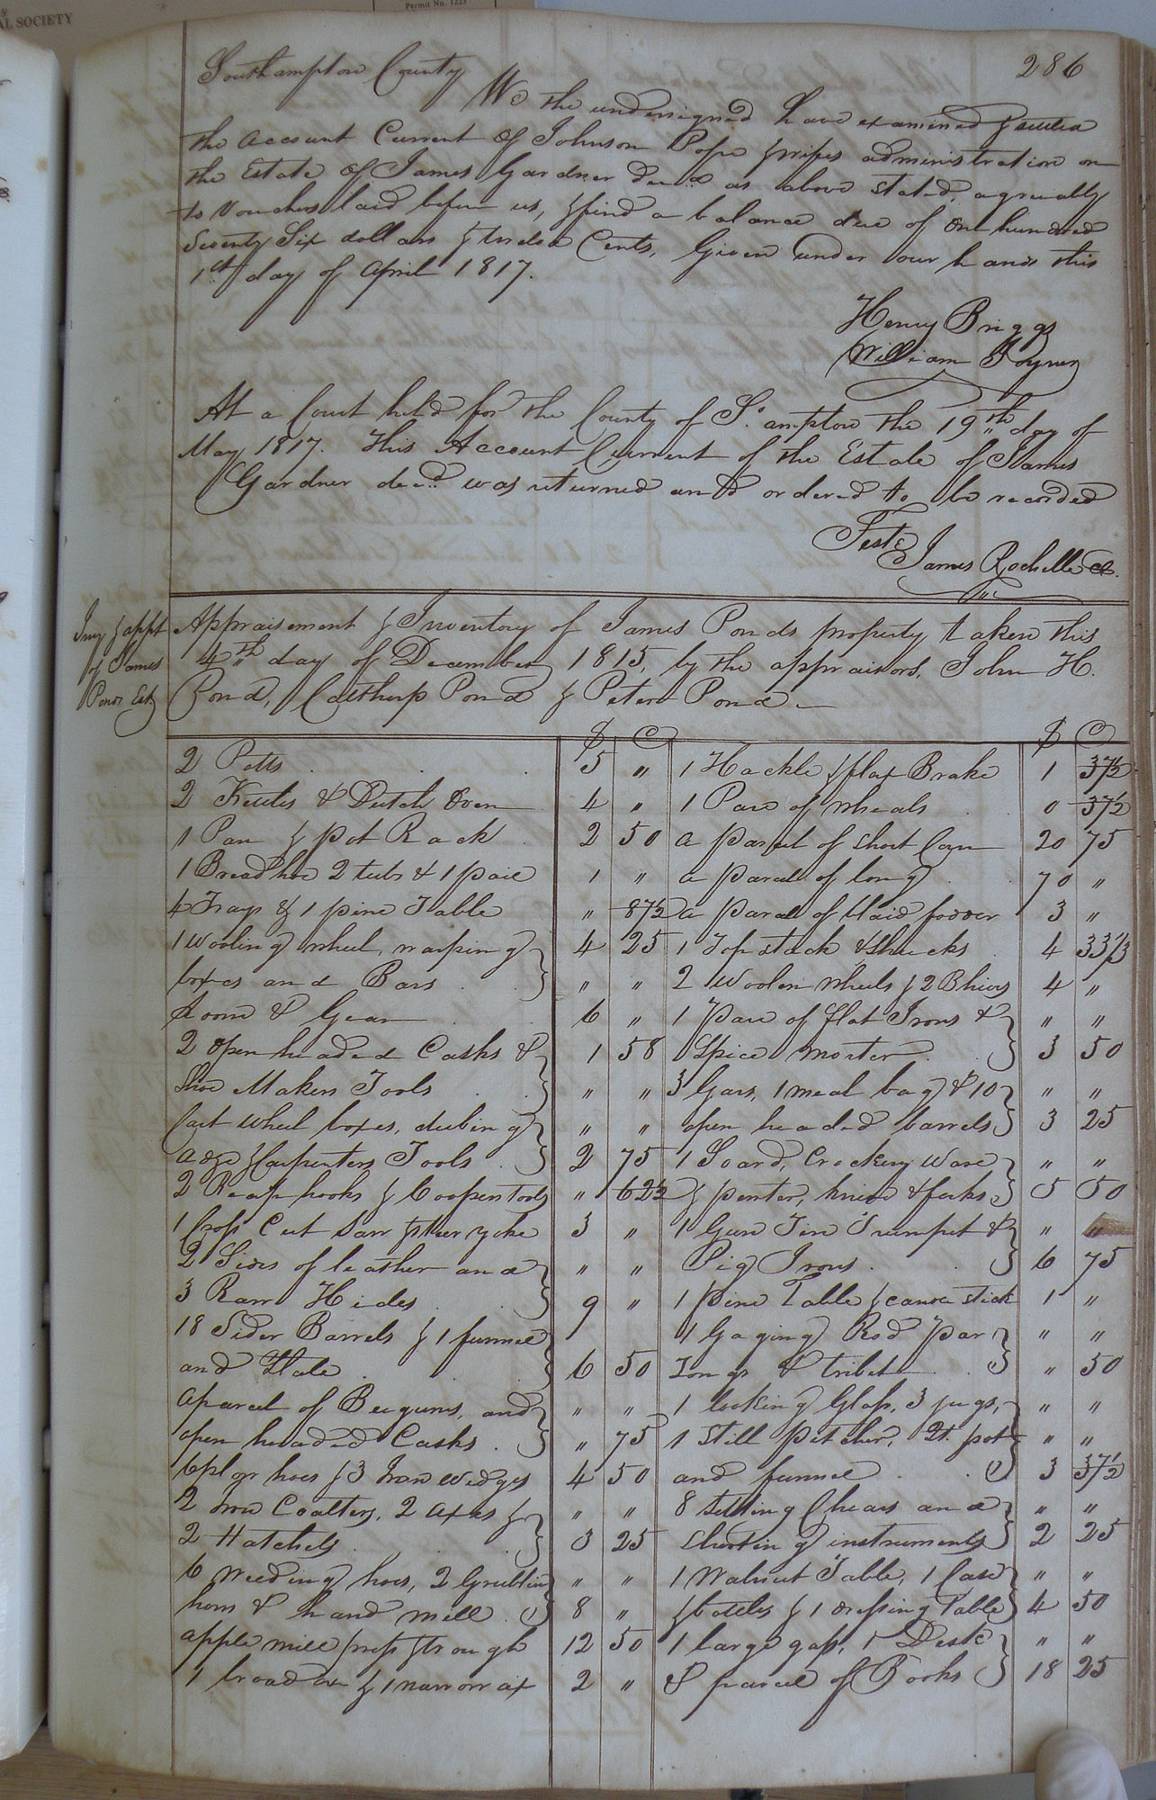 AL SOCIETY
Permit No. 1223
286
Southampton County
We the undersigned have examined &
the Account Current of Johnson Pope & wifes administration on
the Estate of James Gardner decd as above stated, agreeably
to vouchers laid before us, & find a balance due of one hundred
Seventy Six dollars & twelve Cents, Given under our hands this
1st day of April 1817.
Henry Briggs
William Joyner
At a Court held for the County of So.ampton the 19th day of
May 1817. This Account Current of the Estate of James
Gardner decd was returned and ordered to be recorded
Teste
James Rochelle
Invy & appt
of James
Ponds Est.
Appraisement & Inventory of James Ponds property taken this
4th day of December 1815, by the appraisors, John H.
Pond, Calthorp Pond & Peter Pond.
$ C $ C
2 Potts 5 " 1 Hackle & flax Brake 1 37½
2 Kittles & Dutch Oven 4 " 1 Pare of wheals 0 37½
1 Pan & pot Rack 2 50 a parcel of short Corn 20 75
1 Bread hoe 2 tubs & 1 pail 1 " a parcel of long 70 "
4 Trays & 1 pine Table " 87½ a parcel of blaid fodder 3 "
1 Wooling wheel, warping 4 25 1 Top stack & shucks 4 33⅓
boxes and Bars " " 2 Woolen wheels & 2 4 "
Loom & Gear 6 " 1 Pare of flat Irons & " "
2 open headed Casks & 1 58 Spice morter 3 50
Shoe Makers Tools " " 3 Gars, 1 meal bag & 10 " "
Cart wheel boxes, " " open headed barrels 3 25
adze & Carpenters Tools 2 75 1 Crockery Ware " "
2 Reap hooks & Coopers tools " 62½ & peuter, knives & forks 5 50
1 Cross Cut Saw & Steer yoke 3 " 1 Gun Tin Trumpet & " "
2 Sides of leather and " " Pig Irons 6 75
3 Raw Hides 9 " 1 Pine Table & candle stick 1 "
18 Sider Barrels & 1 funnel 1 Gaging Rod par " "
and 6 50 Tongs & tribet " 50
a parcel of Beegums, and " " 1 looking Glass, 3 jugs, " "
open headed Casks " 75 1 Still pitcher, Qt. pot " "
6 hoes & 3 Iron wedges 4 50 and funnel 3 37½
2 Iron Coalters, 2 axes & " " 8 Setting Chears and " "
2 Hatchets 3 25 instruments 2 25
6 Weeding hoes, 2 Grubling " " 1 Walnut Table, 1 Case " "
hoes & hand mill 8 " & bottles & 1 dressing Table 4 50
apple mill press & trough 12 50 1 large 1 Desk " "
1 broad ax & 1 narrow ax 2 " & parcel of Books 18 25